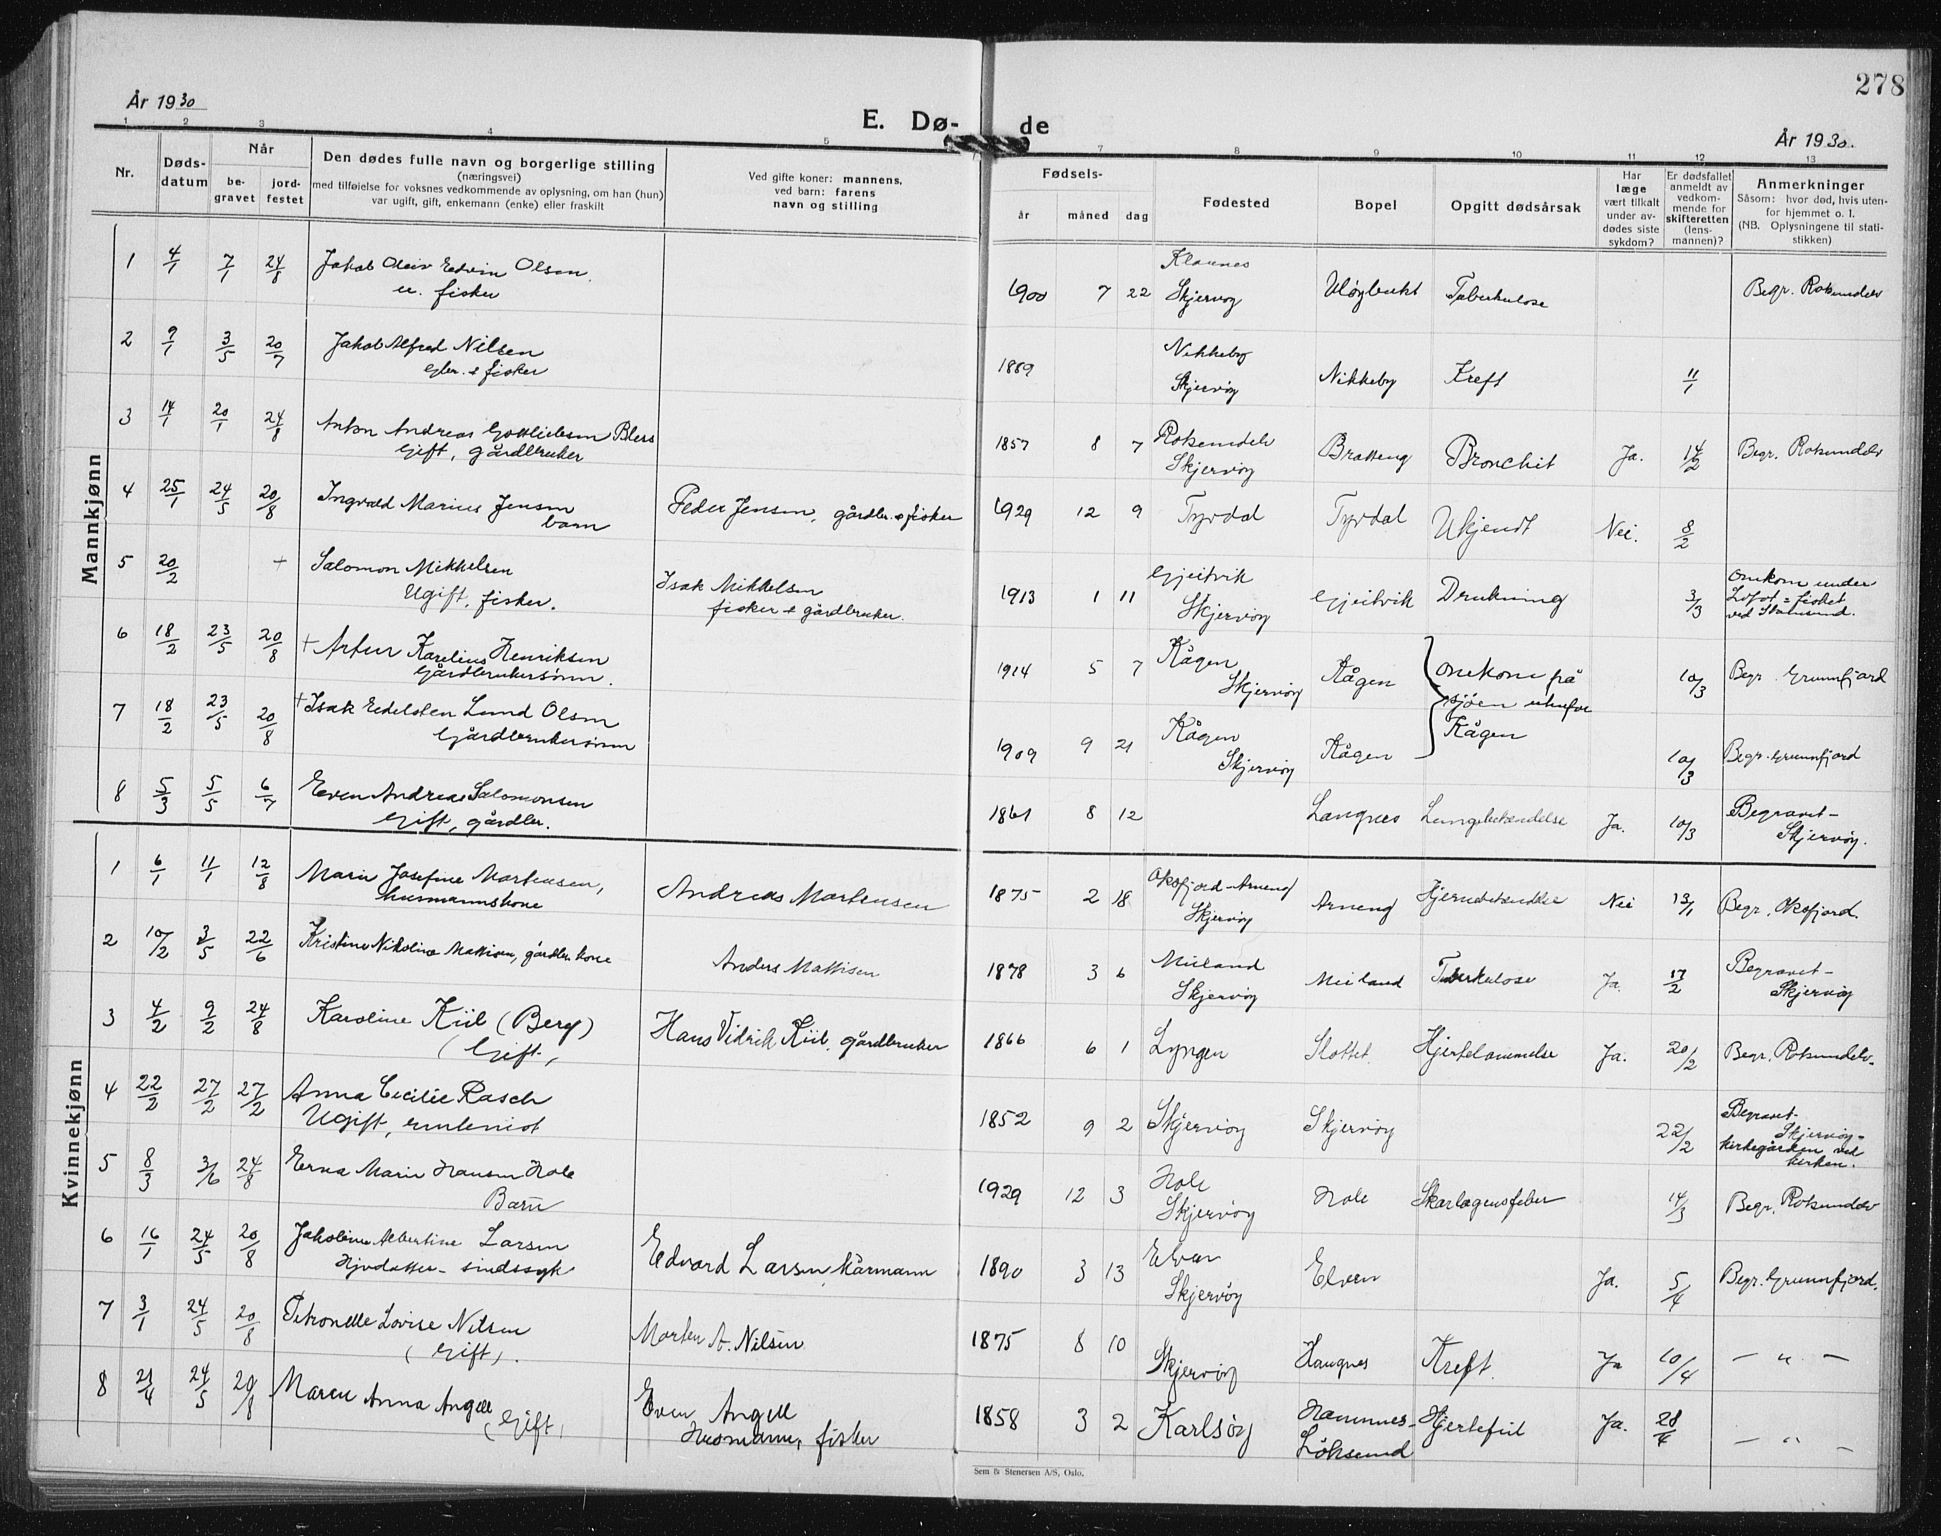 278
År 1930
E. Dø- de
År 1930.
1 2 3 4 5 7 8 9 10 11 12 13
Nr.
Døds-
datum
Når
be-
gravet
jord-
festet
Den dødes fulle navn og borgerlige stilling
(næringsvei)
med tilføielse for voksnes vedkommende av oplysning, om han (hun)
var ugift, gift, enkemann (enke) eller fraskilt
Ved gifte koner: mannens,
ved barn: farens
navn og stilling
Fødsels-
år måned dag
Fødested
Bopel
Opgitt dødsårsak
Har
læge
vært tilkalt
under av-
dødes siste
sykdom?
Er dødsfallet
anmeldt av
vedkom-
mende for
skifteretten
(lens-
mannen)?
Anmerkninger
Såsom: hvor død, hvis uten-
for hjemmet o. l.
(NB. Oplysningene til stati-
stikken)
Mannkjønn
1 4/1 7/1 24/8 Jakob Edvin Olsen
fisker
1900 7 22 Skjervøy Tuberkulose Begr. Rotsundelv
2 9/1 3/5 20/7 Jakob Alfred Nilsen
gbr. & fisker
1889 Nikkeby
Skjervøy Nikkeby Kreft 11/1
3 14/1 20/1 24/8 Anton Andreas Gottliebsen
Gift, gårdbruker
1857 8 7 Rotsundelv
Skjervøy Bratteng Bronchit Ja. 14/2 Begr. Rotsundelv
4 25/1 24/5 20/8 Ingvald Marius Jensen
barn
Peder Jensen, gårdbr. & fisker
1929 12 9 Tyvdal Tyvdal Ukjendt Nei. 8/2
5 20/2 + Salomon Mikkelsen
Ugift, fisker.
Isak Mikkelsen
fisker & gårdbruker.
1913 1 11 Gjeitvik
Skjervøy Gjeitvik Drukning 3/3 Omkom under
Lofot-fisket
ved Stamsund.
6 18/2 23/5 20/8 + Artur Karelius Henriksen
Gårdbrukersønn.
1914 5 7 Kågen
Skjervøy Kågen 10/3 Begr. Grunnfjord
Omkom på
sjøen utenfor
Kågen
7 18/2 23/5 20/8 + Isak Edelsten Lund Olsen
Gårdbrukersønn
1909 9 21 Kågen
Skjervøy Kågen 10/3 Begr. Grunnfjord
8 5/3 5/5 6/7 Even Andreas Salomonsen
Gift, gårdbr.
1861 8 12 Langnes Lungebetændelse Ja. 10/3 Begravet-
Skjervøy.
Kvinnekjønn
1 6/1 11/1 12/8 Marie Josefine Mortensen,
husmannskone
Andreas Mortensen
1875 2 18 Oksfjord-Arneng
Skjervøy Arneng Hjernebetændelse Nei 13/1 Begr. Oksfjord.
2 10/2 3/5 22/6 Kristine Nikoline Mattisen, gårdbr. kone
Anders Mattisen
1878 3 6 Meiland
Skjervøy Meiland Tuberkulose Ja. 17/2 Begravet-
Skjervøy
3 4/2 9/2 24/8 Karoline Kiil (Berg)
(Gift,
Hans Vidrik Kiil, gårdbruker
1866 6 1 Lyngen Slottet Hjertelammelse Ja. 20/2 Begr. Rotsundelv.
4 22/2 27/2 27/2 Anna Cecilie Rasch
Ugift,
1852 9 2 Skjervøy Skjervøy 22/2 Begravet-
Skjervøy-
kirkegården ved
kirken.
5 8/3 3/6 24/8 Erna Marie Hansen Hole
Barn
1929 12 3 Hole
Skjervøy Hole Skarlagensfeber 14/3 Begr. Rotsundelv
6 16/1 24/5 20/8 Jakobine Albertine Larsen
sindssyk
Edvard Larsen,
1890 3 13 Elven
Skjervøy Elven Ja. 5/4 Begr. Grunnfjord.
7 3/1 24/5 20/8 Petronelle Lovise Nilsen
(Gift).
Morten A. Nilsen
1875 8 10 Skjervøy Haugnes Kreft. Ja 10/4 — " —
8 21/4 24/5 20/8 Maren Anna Angell
(Gift,
Even Angell
Husmann, fisker
1858 3 2 Karlsøy Hamnes-
Løksund Hjertefeil Ja. 28/4 — " —
Sem & Stenersen A/S, Oslo.